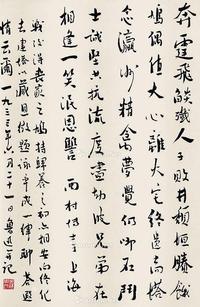 奔霆飛焰殲人子敗井頹垣賸餓
鳩偶值大心離火宅終遺高塔
念瀛洲精禽夢覺仍啣石鬥
士誠堅共抗流度盡劫波兄弟在
相逢一笑泯恩讎 西村博士於上海
戰後得喪家之鳩持歸養之初亦相安而終化
去建塔以藏且徵題詠率成一律聊答遐
情云爾 一九三三年六月二十一日魯迅并記